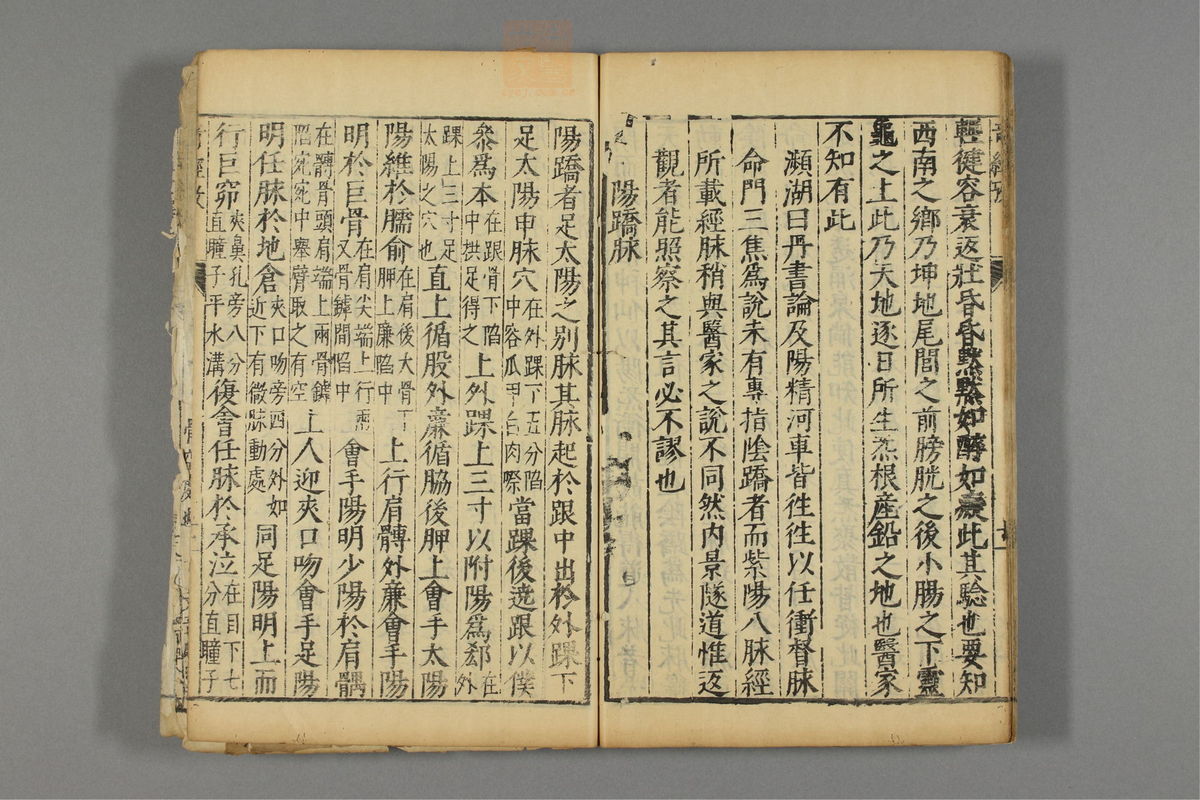 輕健容衰返壯昏昏默默如醉如癡此其驗也要知
西南之鄉乃坤地尾閭之前膀胱之後小腸之下靈
龜之上此乃天地逐日所生炁根產鉛之地也醫家
不知有此
瀕湖曰丹書論及陽精河車皆徃徃以任衝督脉
命門三焦爲說未有專指陰蹻者而紫陽八脉經
所載經脉稍與醫家之說不同然內景隧道惟返
觀者能照察之其言必不謬也
陽蹻脉
陽蹻者足太陽之別脉其脉起於跟中出於外踝下
足太陽申脉穴在外踝下五分陷中容瓜甲白肉際當踝後遶跟以僕
參爲本在跟骨下陷中拱足得之上外踝上三寸以附陽爲郄在外
踝上三寸足太陽之穴也直上循股外廉循脇後胛上會手太陽
陽維於臑俞在肩後大骨下胛上廉陷中上行肩髆外廉會手陽
明於巨骨在肩尖端上行兩叉骨罅間陷中會手陽明少陽於肩髃
在髆骨頭肩端上兩骨罅陷宛宛中舉臂取之有空上人迎夾口吻會手足陽
明任脉於地倉夾口吻旁四分外如近下有微脉動處同足陽明上而
行巨窌夾鼻孔旁八分直瞳子平水溝復會任脉於承泣在目下七分直瞳子